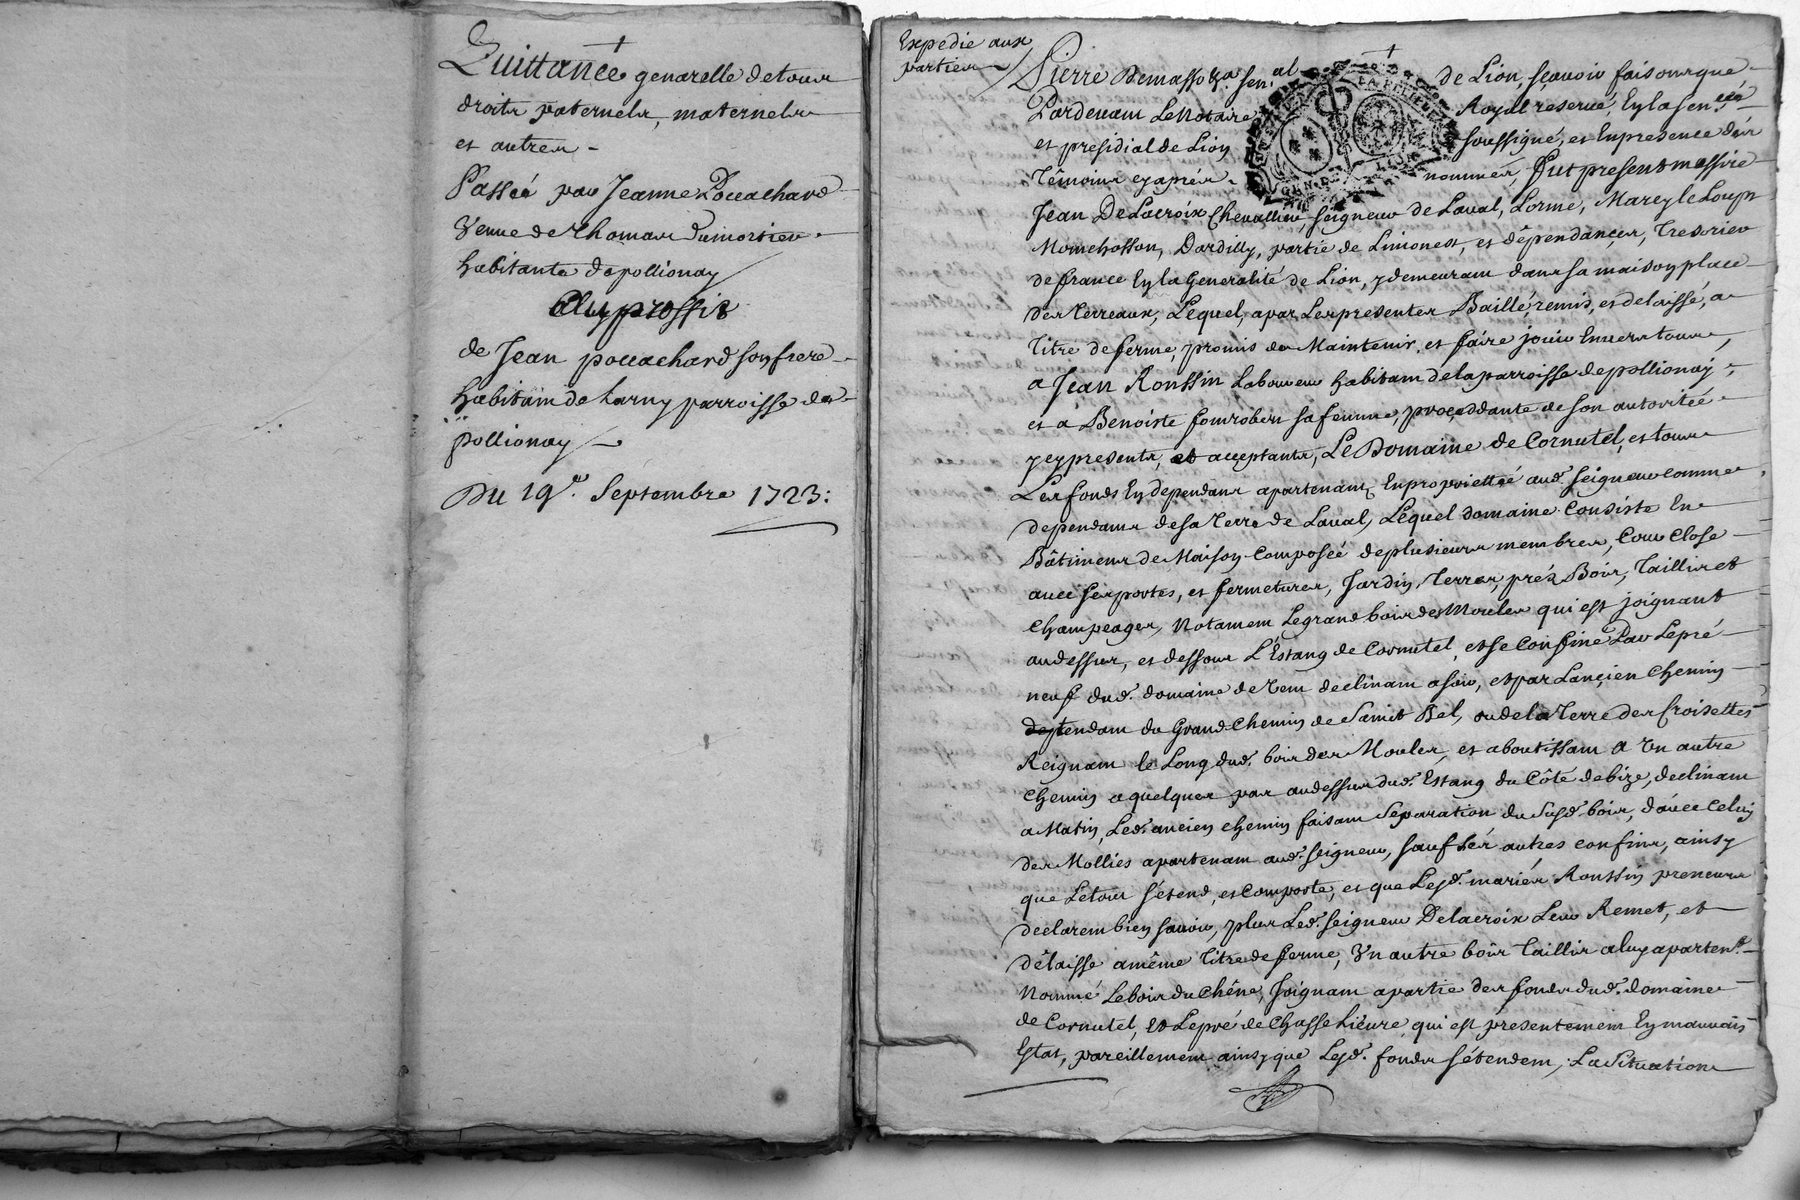 Quittance generelle de tous
droits paternels, maternels
et autres
Passée par Jeanne Pocachard
veuve de Thomas Dumortier
habitante de pollionay
Au proffit
de Jean pocachard son frere
habitant de Larny parroisse de
pollionay
Du 19e. Septembre 1723:
Expedie aux
parties
Pierre Demasso &a. sen.al de Lion, sçavoir faisons que
Pardevant Le Notaire Royal reservé, En la sen.cée
et presidial de Lion soussigné, et En presence des
Têmoins cy apres nommés, Fut present messire
Jean De Lacroix Chevallier, seigneur de Laval, Lorme, Marcy le Loup
Montchosson, Dardilly, partie de Limonest, et dépendances, Tresorier
de france En la Generalité de Lion, y demeurant dans sa maison place
des Terreaux, Lequel, a par Les presentes Baillé, remis, et delaissé, a
titre de ferme, promis de Maintenir, et faire jouir Envers tous,
a Jean Roussin Laboureur habitant de la parroisse de pollionay;
et a Benoiste fontrobert sa femme, proceddante de son autorité
y cy presents, et acceptants, Le Domaine de Cornutel, et tous
Les fonds En dependans apartenant En proprietté aud. seigneur comme
dependant de sa Terre de Laval, Lequel domaine Consiste En
Bâtiments de Maison Composée de plusieurs membres, Cour Close
avec ses portes, et fermetures, Jardin, Terres, prés, Bois, Taillis et
Champeages, Notament Le grand bois des Moules qui est joignant
au dessus, et dessous L'Estang de Cornutel, et se Confine Par Le pré
neuf dud. domaine de vent declinant a soir, et par L'ancien Chemin
deptendant du Grand Chemin de Saint Bel, ou de la Terre des Croisettes
Reignant le Long dud. bois des Moules, et aboutissant a Un autre
Chemin a quelques pas au dessus dud. Estang du Côté de bize, declinant
a Matin, Led. ancien chemin faisant Separation du susd. bois, d'avec Celuy
des Mollies apartenant aud. seigneur, sauf les autres confins, ainsy
que Le tout s'étend, et Comporte, et que Lesd. mariés Roussin preneurs
déclarent bien savoir, plus Led. seigneur Delacroix Leur Remet, et
délaisse a même titre de ferme, Un autre bois Taillis a luy aparten.t
Nommé Le bois du Chêne, Joignant a partie des fonds dud. domaine
de Cornutel, Et Le pré de Chasse Liêvre, qui est presentement En mauvais
Estat, pareillement ainsy que Lesd. fonds s'étendent, La Situation